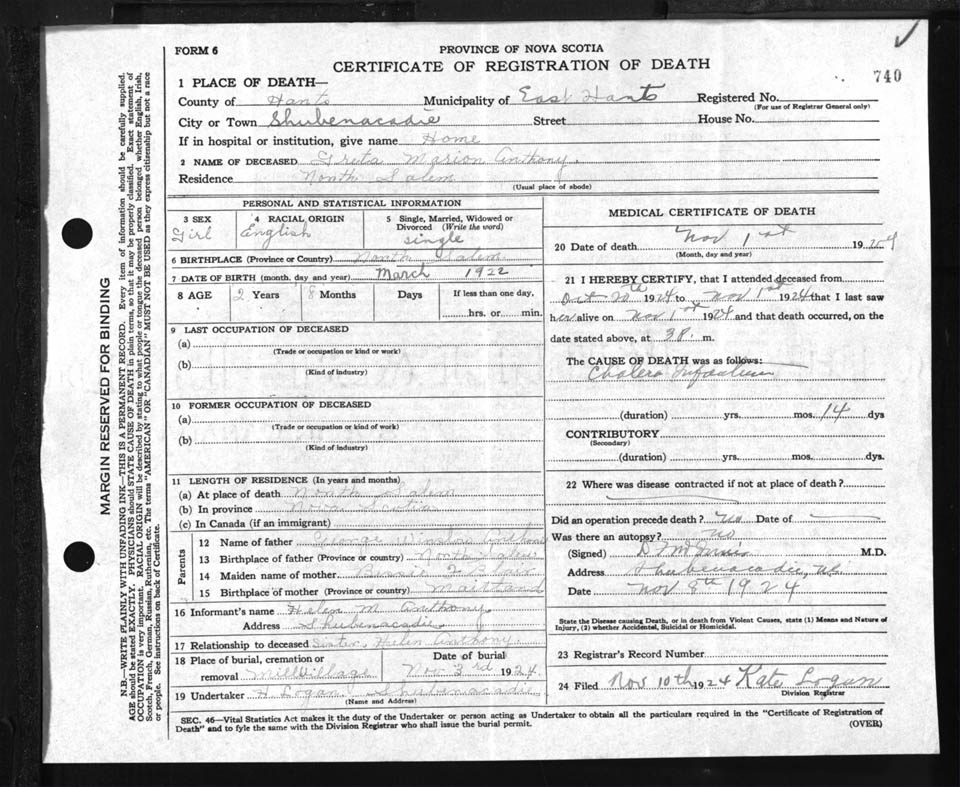 FORM 6
PROVINCE OF NOVA SCOTIA
CERTIFICATE OF REGISTRATION OF DEATH
740
1 PLACE OF DEATH—
County of Hants Municipality of East Hants Registered No.
(For use of Registrar General only)
City or Town Shubenacadie Street House No.
If in hospital or institution, give name Home
2 NAME OF DECEASED Greta Marion Anthony
Residence North Salem
(Usual place of abode)
PERSONAL AND STATISTICAL INFORMATION
3 SEX Girl
4 RACIAL ORIGIN English
5 Single, Married, Widowed or Divorced (Write the word) single
6 BIRTHPLACE (Province or Country) North Salem
7 DATE OF BIRTH (month, day and year) March 1922
8 AGE 2 Years 8 Months Days If less than one day, hrs. or min.
9 LAST OCCUPATION OF DECEASED
(a)
(Trade or occupation or kind or work)
(b)
(Kind of industry)
10 FORMER OCCUPATION OF DECEASED
(a)
(Trade or occupation or kind of work)
(b)
(Kind of industry)
11 LENGTH OF RESIDENCE (In years and months)
(a) At place of death North Salem
(b) In province Nova Scotia
(c) In Canada (if an immigrant)
Parents
12 Name of father George Winslow Anthony
13 Birthplace of father (Province or country) North Salem
14 Maiden name of mother Blair
15 Birthplace of mother (Province or country) Maitland
16 Informant's name Helen M Anthony
Address Shubenacadie
17 Relationship to deceased Sister Helen Anthony
18 Place of burial, cremation or removal Mill Village Date of burial Nov 3rd 1924
19 Undertaker H Logan Shubenacadie
(Name and Address)
MEDICAL CERTIFICATE OF DEATH
20 Date of death Nov 1st 1924
(Month, day and year)
21 I HEREBY CERTIFY, that I attended deceased from
Oct 20th 1924 to Nov 1st 1924 that I last saw
her alive on Nov 1st 1924 and that death occurred, on the
date stated above, at m.
The CAUSE OF DEATH was as follows:
Cholera Infantum
(duration) yrs. mos. 14 dys
CONTRIBUTORY
(Secondary)
(duration) yrs. mos. dys.
22 Where was disease contracted if not at place of death?
Did an operation precede death? no Date of
Was there an autopsy? no
(Signed) M.D.
Address Shubenacadie, N.S.
Date Nov 8th 1924
State the Disease causing Death, or in death from Violent Causes, state (1) Means and Nature of
Injury, (2) whether Accidental, Suicidal or Homicidal.
23 Registrar's Record Number
24 Filed Nov 10th 1924 Kate Logan
Division Registrar
SEC. 46—Vital Statistics Act makes it the duty of the Undertaker or person acting as Undertaker to obtain all the particulars required in the "Certificate of Registration of
Death" and to fyle the same with the Division Registrar who shall issue the burial permit.
(OVER)
MARGIN RESERVED FOR BINDING
N.B.—WRITE PLAINLY WITH UNFADING INK—THIS IS A PERMANENT RECORD. Every item of information should be carefully supplied.
AGE should be stated EXACTLY. PHYSICIANS should STATE CAUSE OF DEATH in plain terms, so that it may be properly classified. Exact statement of
OCCUPATION is very important. RACIAL ORIGIN will be described by stating to what people or tongue the deceased person belonged whether English, Irish,
Scotch, French, German, Russian, Ruthenian, etc. The terms "AMERICAN" OR "CANADIAN" MUST NOT BE USED as they express citizenship but not a race
or people. See instructions on back of Certificate.